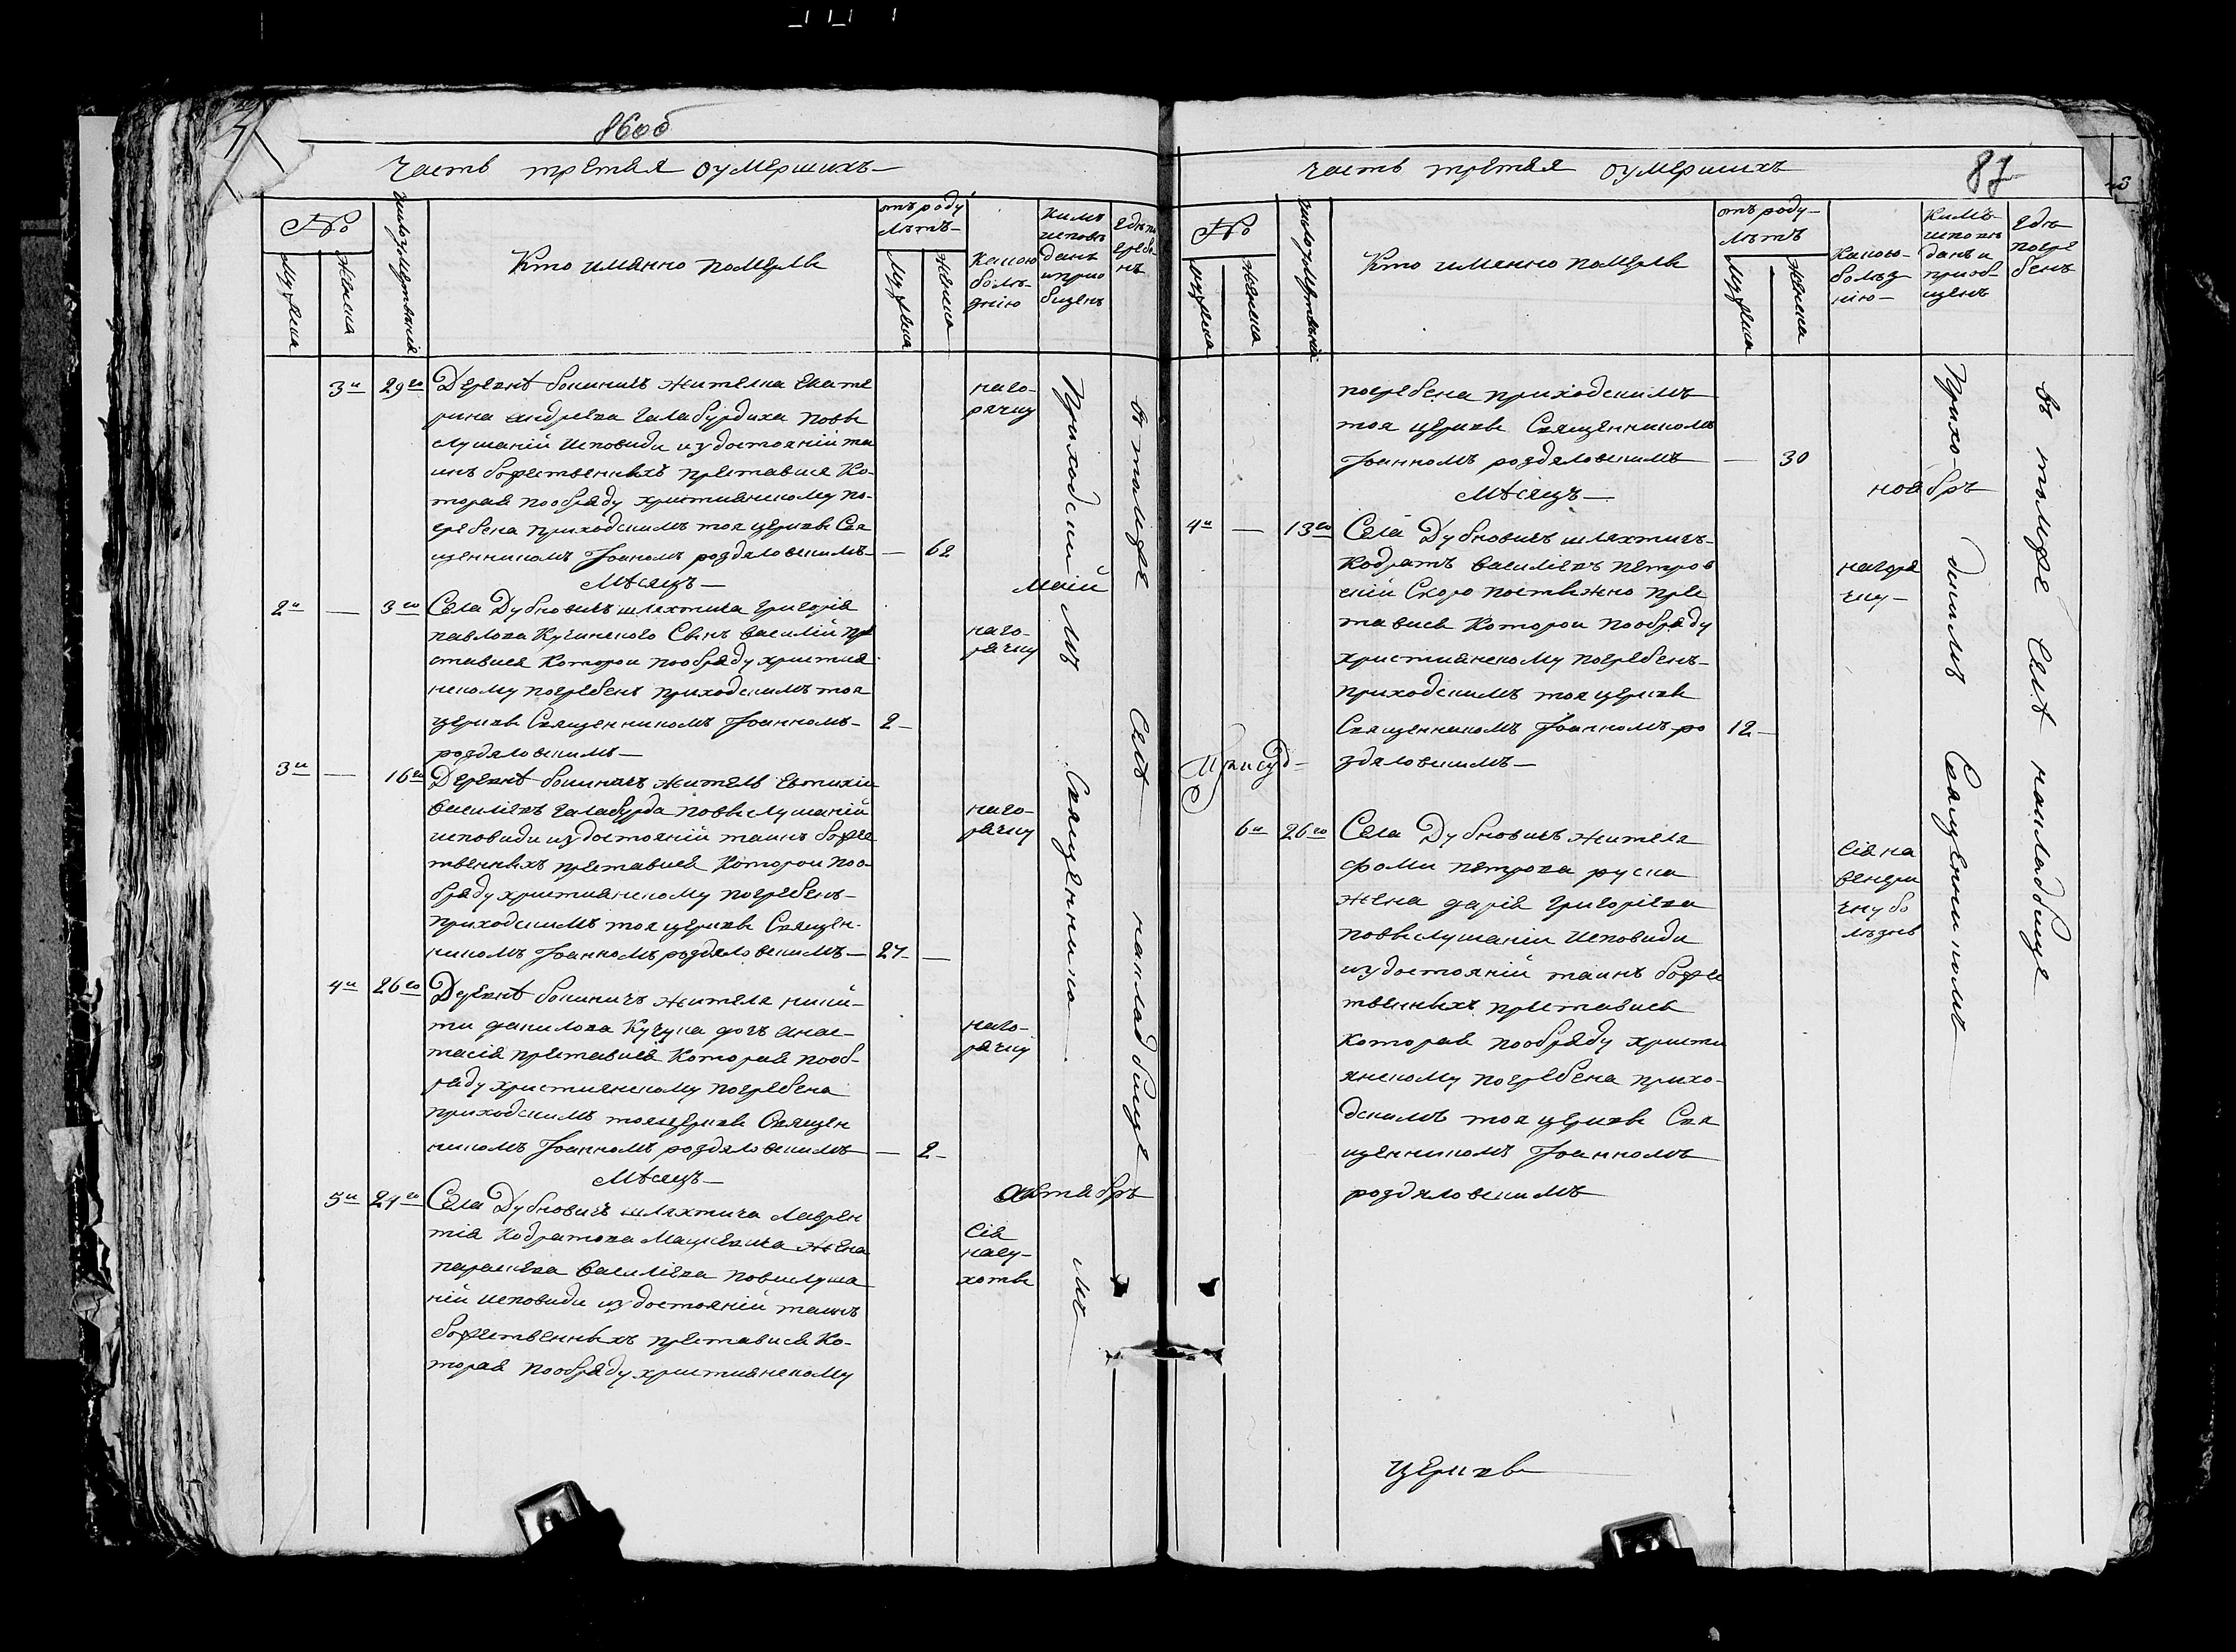 86 об
часть третая оумершихъ
№
мужеска
женска
число умертвія
Кто имянно померлъ
отъ роду
лѣтъ
мужеска
женска
Какою
болѣ-
знію
кимъ
исповѣ
данъ
и прио
бщенъ
Гдѣ по
гребе
нъ
3я 29го Деревнѣ божинич жителка Екате
рина андреева галабурдиха повы
слушаній исповиди и удостояній та
инъ божественныхъ преставися Ко-
торая по обряду християнскому по-
гребена приходскимъ тоя церкви Свя
щенникомъ Іоаномъ роздяловскимъ — 62
наго-
рячку
Мѣсяцъ Маій
2й — 3го Села Дубновичъ шляхтича григорія
павлова Кучинского Сынъ василій пре
ставися Которои по обряду християн
нскому погребенъ приходскимъ тоя
церкви Священникомъ Іоанномъ 2
роздяловскимъ
наго-
рячку
3й — 16го Деревнѣ божиничъ житель Евтихій
василіевъ галабурда по выслушаній
исповиди и удостояній таинъ боже
твенныхъ преставися Которои по о
бряду християнскому погребенъ
приходскимъ тоя церкви Священ-
никомъ Іоанномъ роздяловскимъ 27
наго-
рячку
4я 26го Деревнѣ божиничъ жителя ники-
ти данилова Кучука дочъ анас-
тасія преставися Которая по об-
ряду християнскому погребена
приходскимъ тоя церкви Священ
никомъ Іоанномъ роздяловскимъ — 2
наго-
рячку
Мѣсяцъ октябръ
5я 24го Села Дубновичъ шляхтича лаврен
тія Кодратова жена
параскева василіева по вислуша
ній исповиди и удостояній таинъ
божественныхъ преставися Ко-
торая по обряду християнскому
Сія
насу-
хоты
Приходскимъ Священникомъ
в томже Селѣ накладбище
часть третая оумершихъ
87
№
мужеска
женска
число умертвія
Кто имянно померлъ
отъ роду
лѣтъ
мужеска
женска
Какою
болѣз
нію
Кимъ
исповѣ
данъ и
приоб-
щенъ
Гдѣ
погре
бенъ
погребена приходскимъ
тоя церкви Священникомъ
Іоанномъ роздяловскимъ — 30
Мѣсяцъ ноябръ
4й — 13го Села Дубновичъ шляхтичъ
Кодратъ василіевъ петров
скій Скоро постыжно пре
тависъ Которои по обряду
християнскому погребенъ
приходскимъ тоя церкви
Священникомъ Іоанномъ ро 12
здяловскимъ
нагоря
чку
6я 26го Села Дубновичъ жителя
фоми петрова руска
жена дарія григоріева
по выслушаніи исповиди
и удостояній таинъ боже
твенныхъ преставися
Которая по обряду христи
янскому погребена прихо-
дскимъ тоя церкви Свя
щенникомъ Іоанномъ
роздяловскимъ
Сія на
венери
чну бо
лѣзнь
Приходскимъ Священникомъ
въ томже Селѣ накладбище
церкви